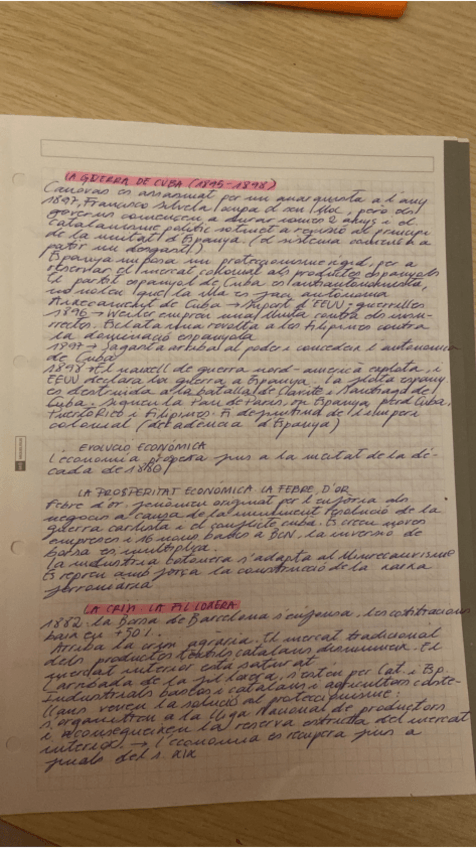 LA GUERRA DE CUBA (1895-1898)
Cánovas és assassinat per un anarquista a l'any
1897, Francisco Silvela ocupa el seu lloc, però els
governs comencen a durar només 2 anys i el
catalanisme polític sotmet a revisió el principi
de la unitat d'Espanya (el sistema comença a
patir un desgast)
Espanya imposa un proteccionisme rígid, per a
reservar el mercat colonial als productes espanyols
El partit espanyol de Cuba és antiautonomista,
no volen que la illa es faci autònoma
Aixecament de Cuba → suport d'EEUU; guerrilles
1896 → Weiler empren una lluita contra els insu-
rrectes. Esclata una revolta a les Filipines contra
la dominació espanyola
1897 → Sagasta arriba al poder i concedeix l'autonomia
de Cuba
1898 → El vaixell de guerra nord-americà explota, i
EEUU declara la guerra a Espanya. La flota espany
és destruida a la batalla de Cavite i Santiago de
Cuba. Signen la Pau de París, on Espanya perd Cuba,
Puerto Rico i Filipines. Fi definitiva de l'imperi
colonial (decadència d'Espanya)
EVOLUCIÓ ECONÒMICA
L'economia prospera fins a la meitat de la dè-
cada de 1880
LA PROSPERITAT ECONÒMICA. LA FEBRE D'OR
Febre d'or: fenòmen originat per l'eufòria als
negocis a causa de la imminent resolució de la
guerra carlista i el conflicte cubà. Es creen noves
empreses i 16 nous bancs a BCN, la inversió de
borsa es multiplica.
La indústria cotonera s'adapta al lliurecanvisme
Es reprèn amb força la construcció de la xarxa
ferroviària
LA CRISI. LA FIL·LOXERA
1882: la Borsa de Barcelona s'ensorra, les cotitzacions
baixen +50%.
Arriba la crisi agrària. El mercat tradicional
dels productes tèxtils catalans disminueix. El
mercat interior està saturat
L'arribada de la fil·loxera, s'estén per Cat. i Esp.
Industrials bascos i catalans i agricultors caste-
llans veuen la solució al proteccionisme:
s'organitzen a la Lliga Nacional de productors
i aconsegueixen la reserva estricta del mercat
interior → l'economia es recupera fins a
finals del s. XIX